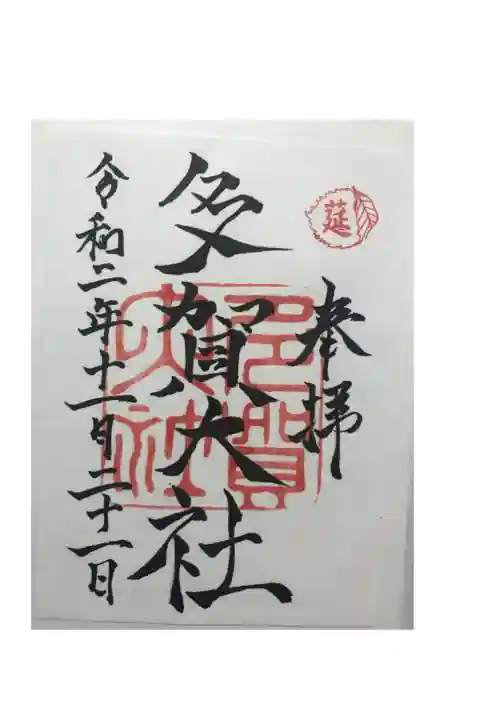 延
奉拝
多賀大社
多賀大社
令和二年十一月二十一日